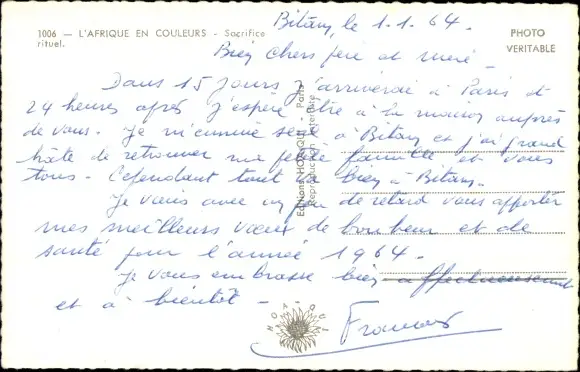 Bitam, le 1.1.64.
1006 — L'AFRIQUE EN COULEURS - Sacrifice
rituel.
PHOTO
VERITABLE
Bien chers père et mère -
Dans 15 jours j'arriverai à Paris et
24 heures après j'espère être à la maison auprès
de vous. Je m'ennuie seul à Bitam et j'ai grand
hâte de retrouver ma petite famille et vous
tous. Cependant tout va bien à Bitam.
Je viens avec un peu de retard vous apporter
mes meilleurs vœux de bonheur et de
santé pour l'année 1964.
Je vous embrasse bien affectueusement
et à bientôt -
Editions HOA-QUI - Paris
Reproduction interdite
HOA-QUI